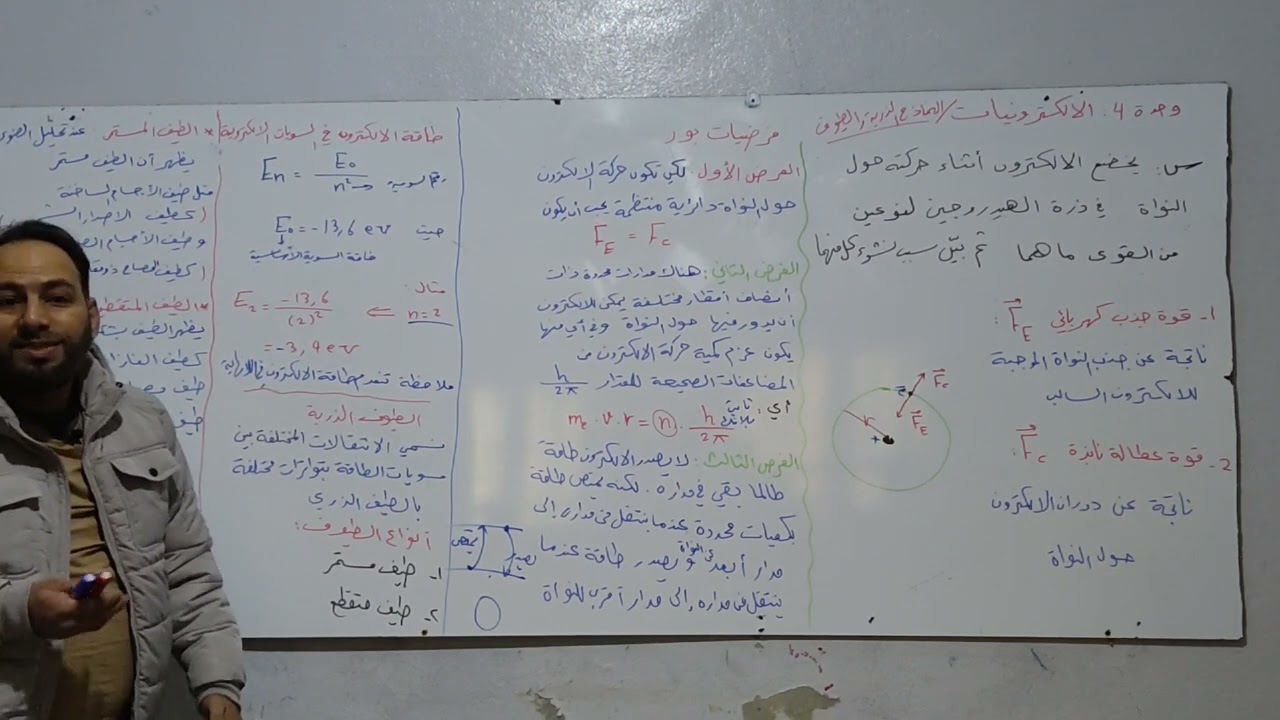 وحدة 4. الالكترونيات/النماذج الذرية والطيوف
س: يخضع الالكترون أثناء حركته حول
النواة في ذرة الهيدروجين لنوعين
من القوى ما هما ثم بيّن سبب نشوء كل منها
1- قوة جذب كهربائي F_E :
ناتجة عن جذب النواة الموجبة
للالكترون السالب
2- قوة عطالة نابذة F_c :
ناتجة عن دوران الالكترون
حول النواة
e
F_c
F_E
r
+
فرضيات بور
الفرض الأول: لكي تكون حركة الالكترون
حول النواة دائرية منتظمة يجب أن يكون
F_E = F_c
الفرض الثاني: هناك مدارات محددة ذات
أنصاف أقطار مختلفة يمكن للالكترون
أن يدور فيها حول النواة وفي أي منها
يكون عزم كمية حركة الالكترون من
المضاعفات الصحيحة للمقدار h/2π
أي: m_e . v . r = n . h/2π ثابت بلانك
الفرض الثالث: لا يصدر الالكترون طاقة
طالما بقي في مداره. لكنه يمتص طاقة
بكميات محددة عندما ينتقل من مداره إلى
مدار أبعد عن النواة و يصدر طاقة عندما
ينتقل من مداره إلى مدار أقرب للنواة
يمتص
يصدر
طاقة الالكترون في السويات الالكترونية
E_n = E_0/n² → رقم السوية
حيث E_0 = -13,6 ev
طاقة السوية الأساسية
مثال:
n = 2 ⇐ E_2 = -13,6/(2)²
= -3,4 ev
ملاحظة تنعدم طاقة الالكترون في اللانهاية
الطيوف الذرية
نسمي الانتقالات المختلفة بين
سويات الطاقة بتواترات مختلفة
بالطيف الذري
أنواع الطيوف:
1- طيف مستمر
2- طيف متقطع
* الطيف المستمر عند تحليل الضوء
يظهر أن الطيف مستمر
مثل طيف الأجسام الساخنة
(كطيف الاصدار
وطيف الأجسام
(كطيف المصباح
* الطيف المتقطع
يظهر الطيف
كطيف الغاز
طيف
طيف